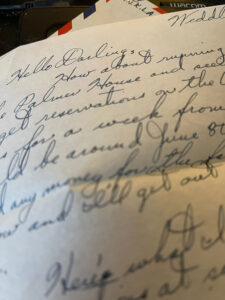 Wedd
Hello Darlings,
How about running
Palmer House and see
get reservations on the
for a week from
ld be around June 8
any money for the
ow and I'll get out
Here's what I
at